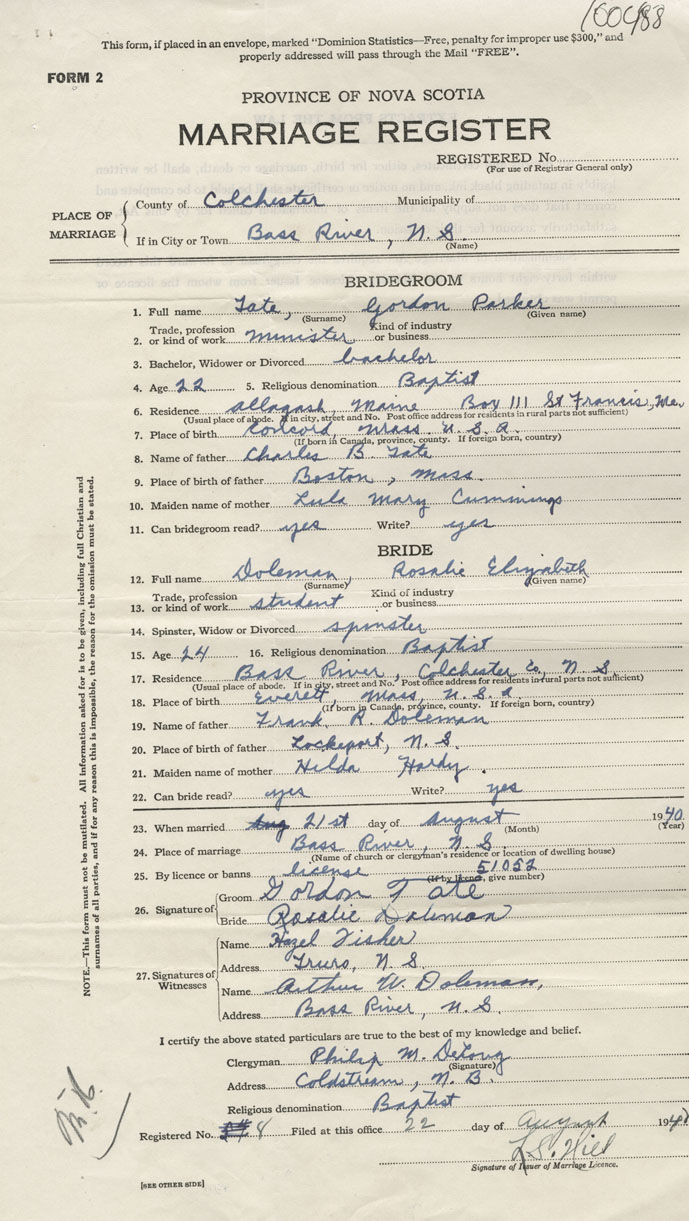 This form, if placed in an envelope, marked "Dominion Statistics—Free, penalty for improper use $300," and
properly addressed will pass through the Mail "FREE".
FORM 2
PROVINCE OF NOVA SCOTIA
MARRIAGE REGISTER
REGISTERED No.
(For use of Registrar General only)
PLACE OF MARRIAGE
County of Colchester Municipality of
If in City or Town Bass River, N.S.
(Name)
BRIDEGROOM
1. Full name Tate, Gordon Parker
(Surname) (Given name)
2. Trade, profession or kind of work minister Kind of industry or business
3. Bachelor, Widower or Divorced bachelor
4. Age 22 5. Religious denomination Baptist
6. Residence Allagash, Maine Box 111 St Francis, Me.
(Usual place of abode. If in city, street and No. Post office address for residents in rural parts not sufficient)
7. Place of birth Concord, Mass. U.S.A.
(If born in Canada, province, county. If foreign born, country)
8. Name of father Charles B. Tate
9. Place of birth of father Boston, Mass.
10. Maiden name of mother Lula Mary Cummings
11. Can bridegroom read? yes Write? yes
BRIDE
12. Full name Doleman, Rosalie Elizabeth
(Surname) (Given name)
13. Trade, profession or kind of work student Kind of industry or business
14. Spinster, Widow or Divorced spinster
15. Age 24 16. Religious denomination Baptist
17. Residence Bass River, Colchester Co., N.S.
(Usual place of abode. If in city, street and No. Post office address for residents in rural parts not sufficient)
18. Place of birth Everett Mass, U.S.A.
(If born in Canada, province, county. If foreign born, country)
19. Name of father Frank R. Doleman
20. Place of birth of father Lockeport, N.S.
21. Maiden name of mother Hilda Hardy.
22. Can bride read? yes Write? yes
23. When married 21st day of August 1940
(Month) (Year)
24. Place of marriage Bass River, N.S.
(Name of church or clergyman's residence or location of dwelling house)
25. By licence or banns license 51052
(If by licence, give number)
26. Signature of Groom Gordon Tate
Bride Rosalie Doleman
27. Signatures of Witnesses
Name Hazel Fisher
Address Truro, N.S.
Name Arthur W. Doleman,
Address Bass River, N.S.
I certify the above stated particulars are true to the best of my knowledge and belief.
Clergyman Philip M. DeLong
(Signature)
Address Coldstream, N.B.
Religious denomination Baptist
Registered No. 8 Filed at this office 22 day of August 1940
L.S. Hill
Signature of Issuer of Marriage Licence.
[SEE OTHER SIDE]
NOTE.—This form must not be mutilated. All information asked for is to be given, including full Christian and
surnames of all parties, and if for any reason this is impossible, the reason for the omission must be stated.